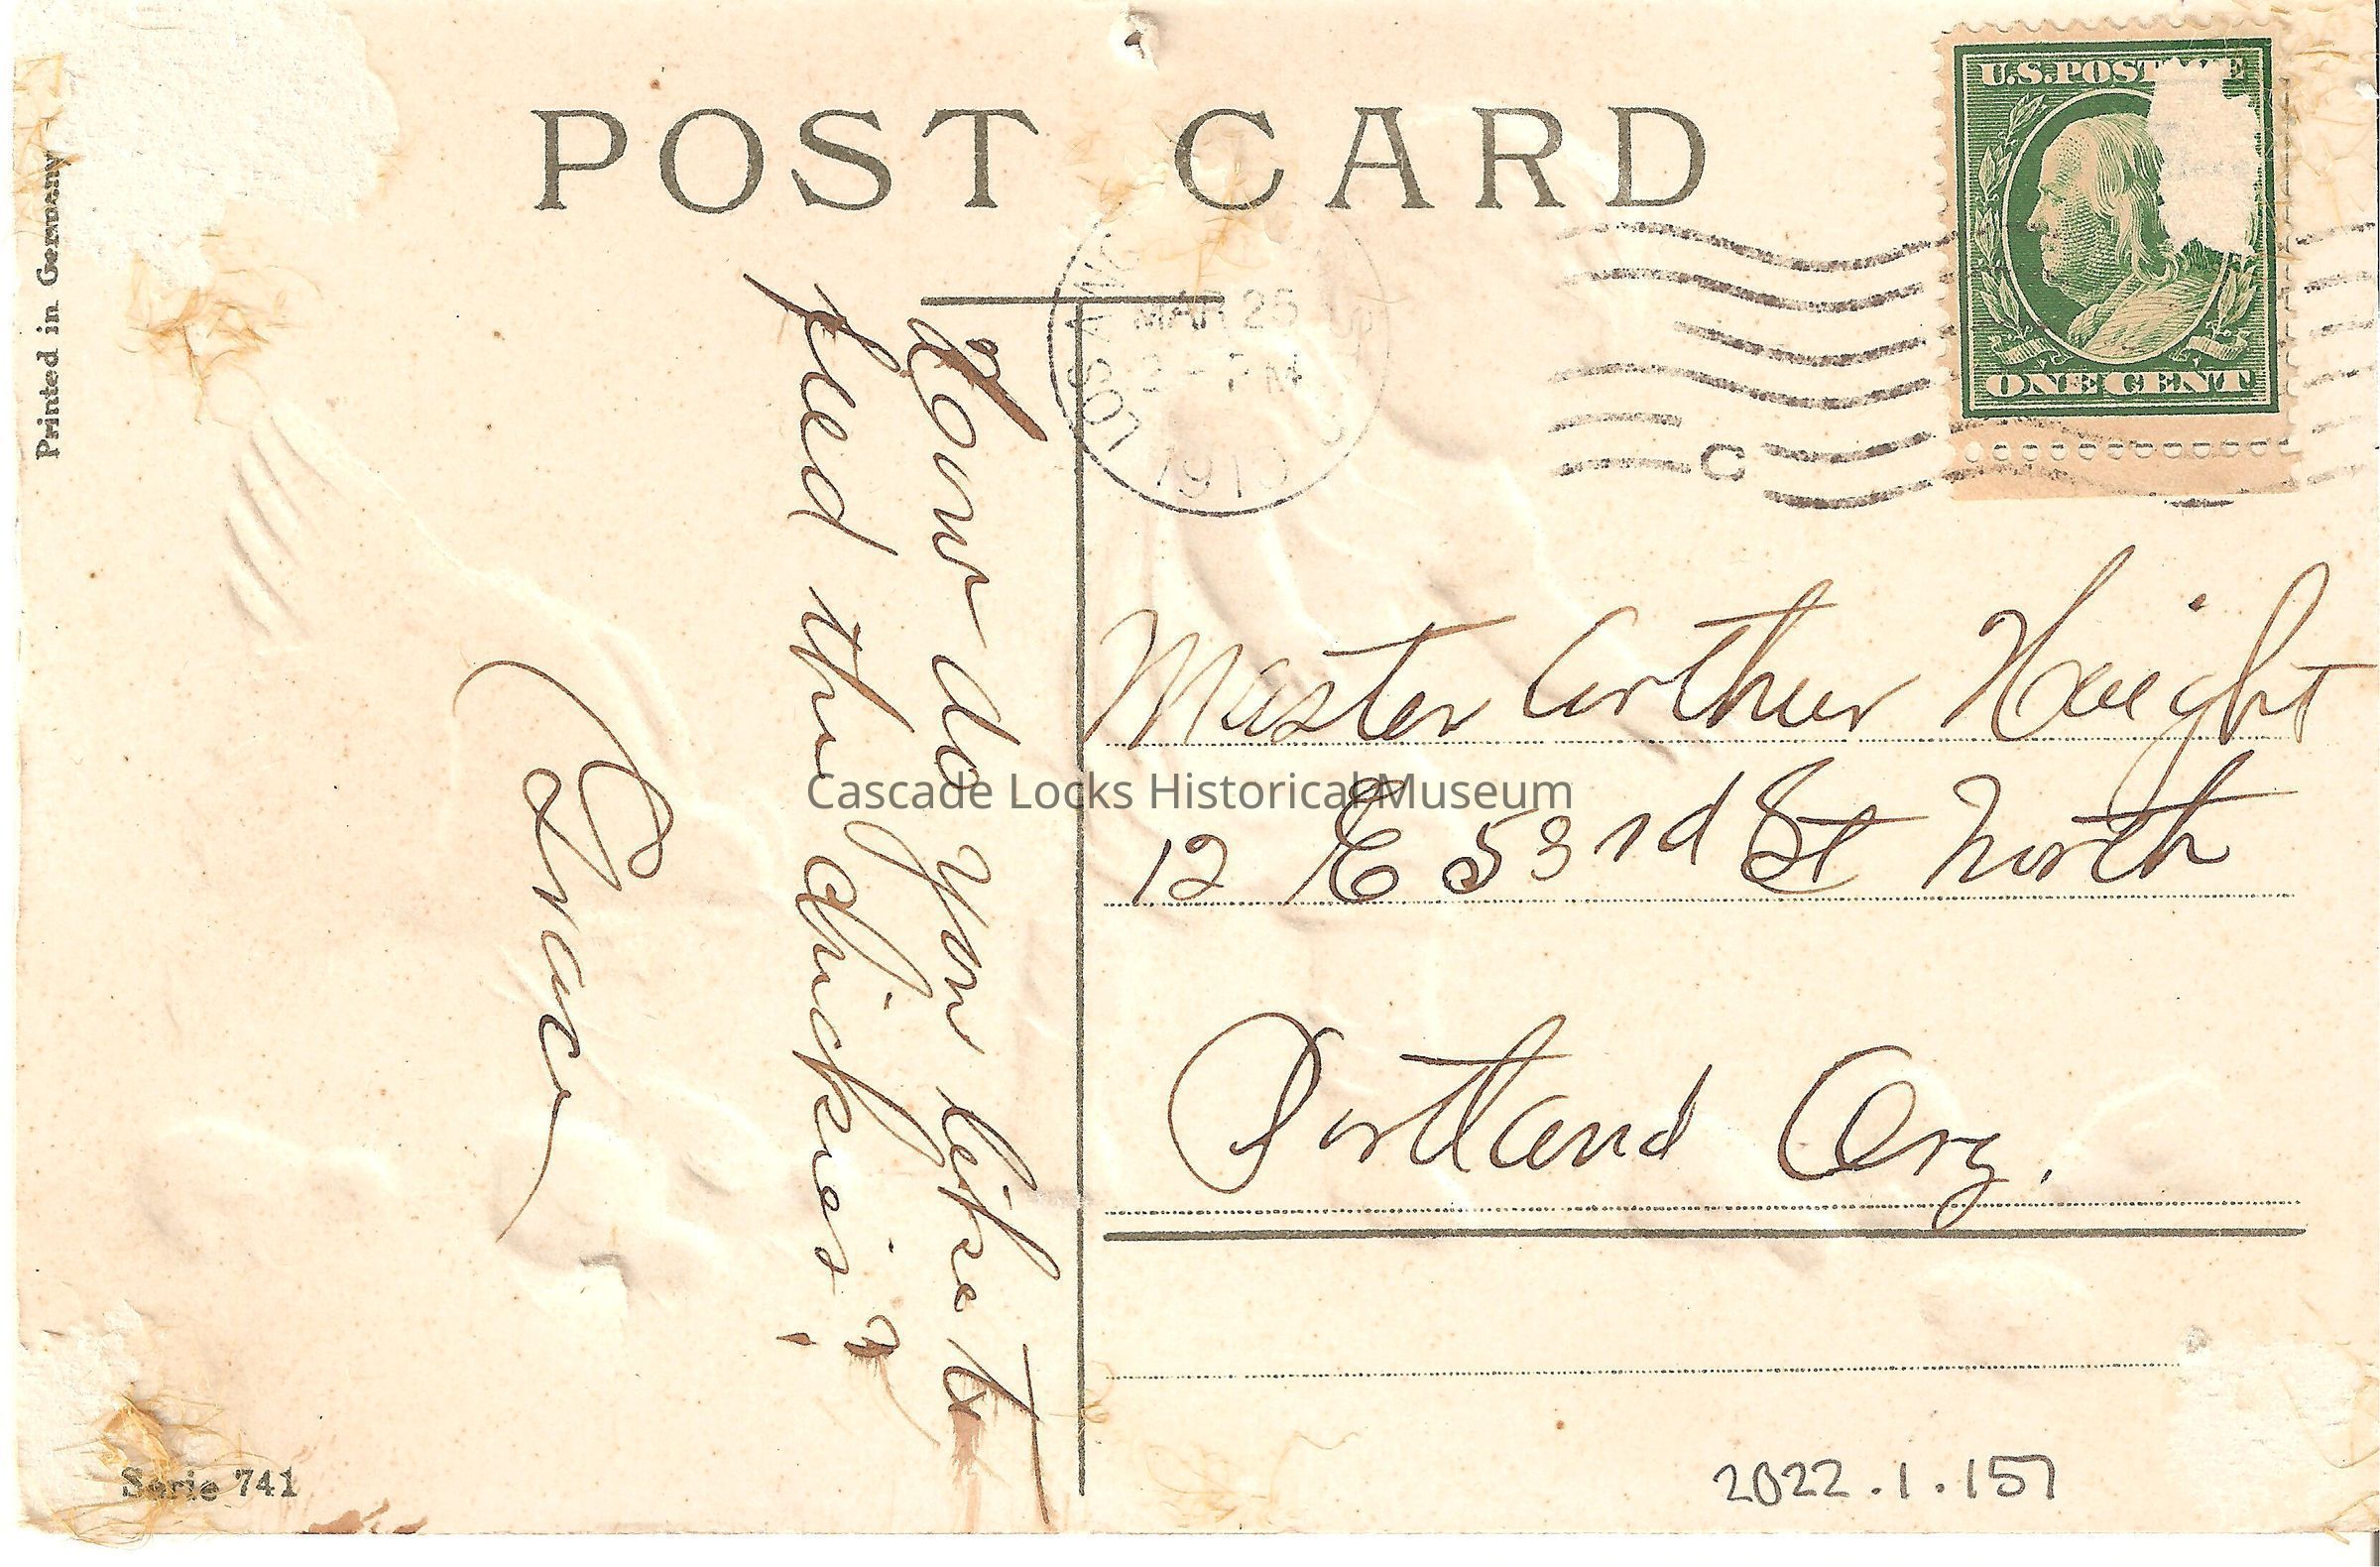 POST CARD
U.S. POSTAGE
ONE CENT
LOS ANG
MAR 25
2 - PM
1910
C
Printed in Germany
How do you like to
feed the chickies?
Grace
Master Arthur Haight
12 E 53rd St North
Portland Org.
Cascade Locks Historical Museum
Serie 741
2022.1.157